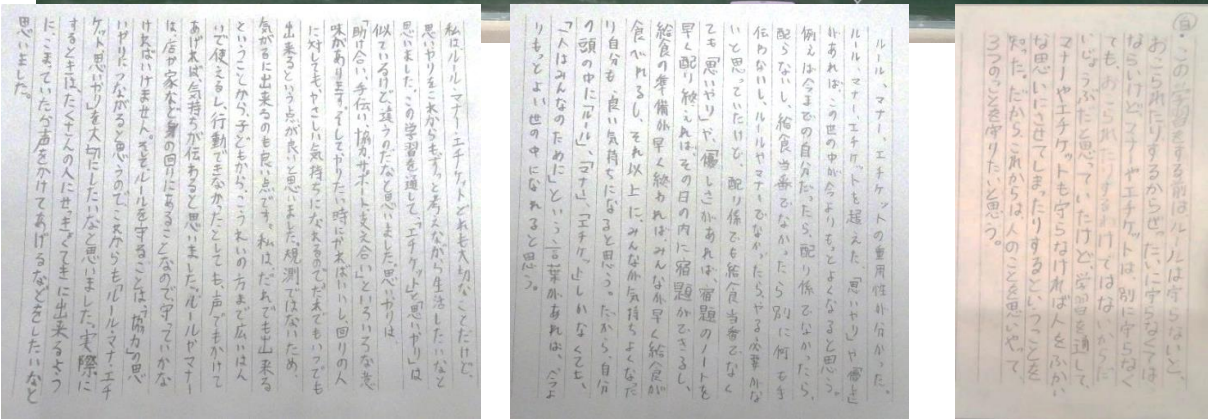 私は「ルール・マナー・エチケット」どれも大切なことだけど、
思いやりをこれからもずっと考えながら生活したいなと
思いました。この学習を通して、「エチケット」と「思いやり」は
似ているけど違うのだなと思いました。思いやりは
「助け合い、手伝い、協力、サポート、支え合い」といろいろな意
味があります。そしてやりたい時にやればいいし、回りの人
に対しても、やさしい気持ちになれるので、だれでもいつでも
出来るという点が良いと思いました。規則ではないため、
気がるに出来るのも良い点です。私は、だれでも出来る
ということから、子どもから、こうれいの方まで広いはん
いで使えるし、行動できなかったとしても、声でもかけて
あげれば、気持ちが伝わると思いました。ルールやマナー
は、店や家など身の回りにあることなので守っていかな
ければいけません。そのルールを守ることは、「協力」の思
いやりにつながると思うので、これからも「ルール・マナー・エチ
ケット・思いやり」を大切にしたいなと思いました。実際に
するときは、たくさんの人にせっきょくてきに出来るよう
に、こまっていたら声をかけてあげるなどをしたいなと
思いました。
ルール、マナー、エチケットの重用性が分かった。
ルール、マナー、エチケットを超えた「思いやり」や「優しさ」
があれば、この世が今よりもっとよくなると思う。
例えば今までの自分だったら、配り係でなかったら、
配らないし、給食当番でなかったら別に何も手
伝わないし、ルールやマナーでなかったら、やる必要がな
いと思っていたけど、配り係でも給食当番でなく
ても「思いやり」や、「優しさ」があれば、宿題のノートを
早く配り終えればその日の内に宿題ができるし、
給食の準備が早く終わればみんなが早く給食が
食べれるし、それ以上に、みんなが気持ちよくなった
り自分も、良い気持ちになると思う。だから、自分
の頭の中に「ルール」、「マナー」、「エチケット」しかなくても、
「一人はみんなのために」という言葉があれば、今よ
りもっとよい世の中になれると思う。
自・この学習をする前は、ルールは守らないと、
おこられたりするからぜったいに守らなくては
ならいけど、マナーやエチケットは別に守らなく
ても、おこられたりするわけではないからだ
いじょうぶだと思っていたけど学習を通して、
マナーやエチケットも守らなければ人をふかい
な思いにさせてしまったりするということを
知った。だから、これからは、人のことを思いやって
3つのことを守りたいと思う。